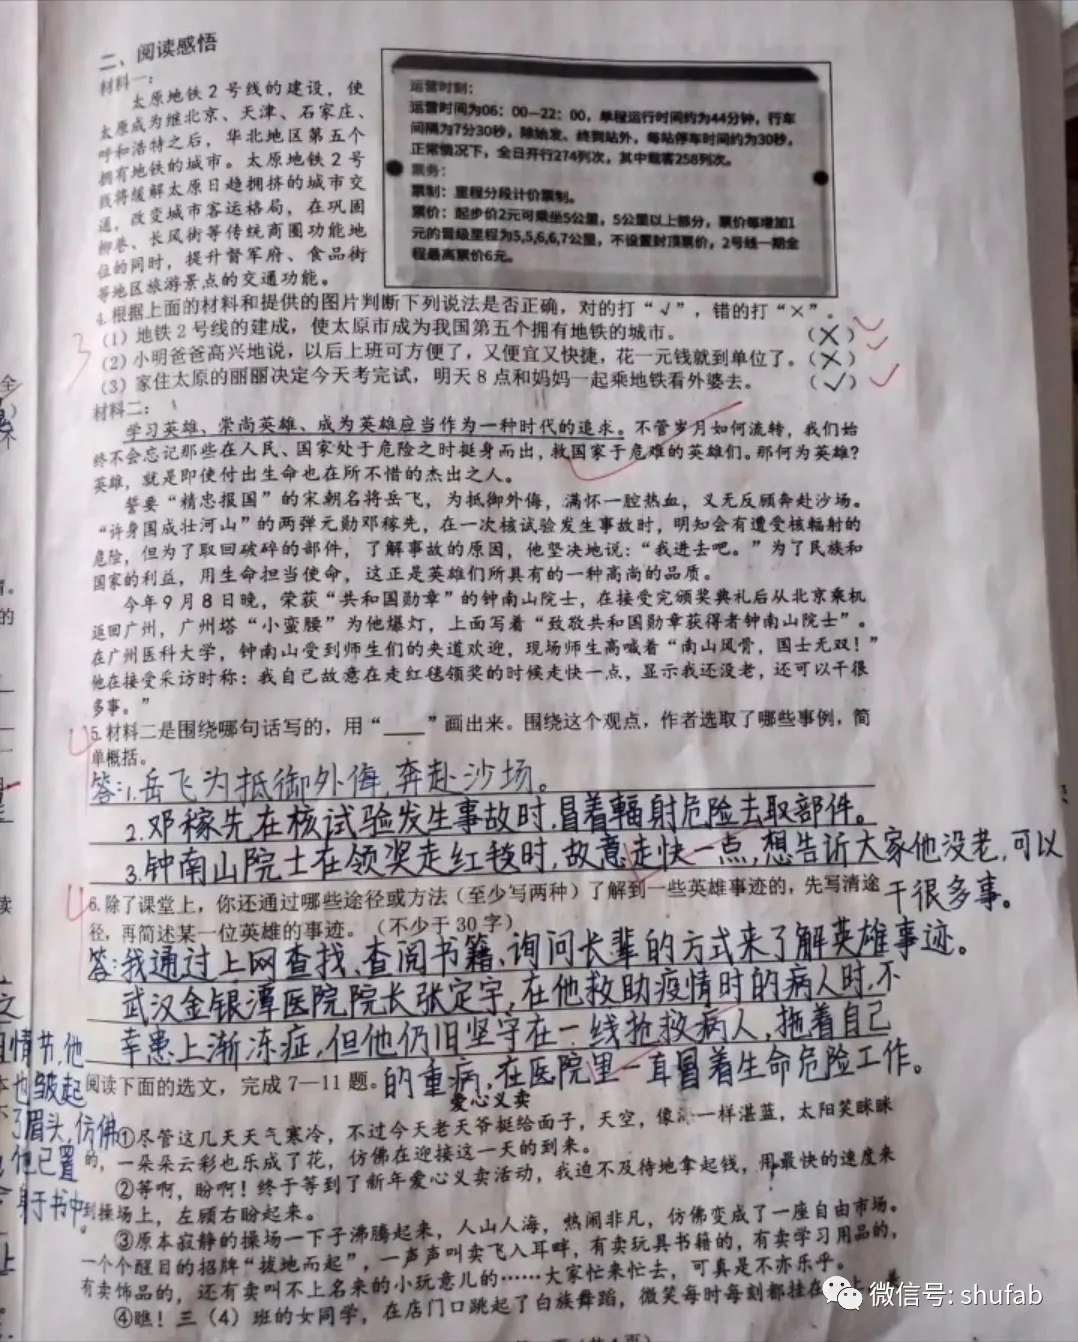 二、阅读感悟
材料一:
太原地铁2号线的建设，使
太原成为继北京、天津、石家庄、
呼和浩特之后，华北地区第五个
拥有地铁的城市。太原地铁2号
线将缓解太原日趋拥挤的城市交
通，改变城市客运格局，在巩固
柳巷、长风街等传统商圈功能地
位的同时，提升督军府、食品街
等地区旅游景点的交通功能。
运营时刻:
运营时间为06：00—22：00，单程运行时间约为44分钟，行车
间隔为7分30秒，除始发、终到站外，每站停车时间约为30秒，
正常情况下，全日开行274列次，其中载客258列次。
票务:
票制：里程分段计价票制。
票价：起步价2元可乘坐5公里，5公里以上部分，票价每增加1
元的晋级里程为5,5,6,6,7公里，不设置封顶票价，2号线一期全
程最高票价6元。
4.根据上面的材料和提供的图片判断下列说法是否正确，对的打“√”，错的打“×”。
3
(1)地铁2号线的建成，使太原市成为我国第五个拥有地铁的城市。 (×)
(2)小明爸爸高兴地说，以后上班可方便了，又便宜又快捷，花一元钱就到单位了。(×)
(3)家住太原的丽丽决定今天考完试，明天8点和妈妈一起乘地铁看外婆去。 (√)
材料二:
学习英雄、崇尚英雄、成为英雄应当作为一种时代的追求。不管岁月如何流转，我们始
终不会忘记那些在人民、国家处于危险之时挺身而出，救国家于危难的英雄们。那何为英雄?
英雄，就是即使付出生命也在所不惜的杰出之人。
誓要“精忠报国”的宋朝名将岳飞，为抵御外侮，满怀一腔热血，义无反顾奔赴沙场。
“许身国成壮河山”的两弹元勋邓稼先，在一次核试验发生事故时，明知会有遭受核辐射的
危险，但为了取回破碎的部件，了解事故的原因，他坚决地说：“我进去吧。”为了民族和
国家的利益，用生命担当使命，这正是英雄们所具有的一种高尚的品质。
今年9月8日晚，荣获“共和国勋章”的钟南山院士，在接受完颁奖典礼后从北京乘机
返回广州，广州塔“小蛮腰”为他爆灯，上面写着“致敬共和国勋章获得者钟南山院士”。
在广州医科大学，钟南山受到师生们的夹道欢迎，现场师生高喊着“南山风骨，国士无双！”
他在接受采访时称：我自己故意在走红毯领奖的时候走快一点，显示我还没老，还可以干很
多事。”
4
5.材料二是围绕哪句话写的，用“___”画出来。围绕这个观点，作者选取了哪些事例，简
单概括。
答:1.岳飞为抵御外侮,奔赴沙场。
2.邓稼先在核试验发生事故时,冒着辐射危险去取部件。
3.钟南山院士在领奖走红毯时,故意走快一点,想告诉大家他没老,可以
干很多事。
4
6.除了课堂上，你还通过哪些途径或方法（至少写两种）了解到一些英雄事迹的，先写清途
径，再简述某一位英雄的事迹。（不少于30字）
答:我通过上网查找、查阅书籍、询问长辈的方式来了解英雄事迹。
武汉金银潭医院院长张定宇,在他救助疫情时的病人时,不
幸患上渐冻症,但他仍旧坚守在一线抢救病人,拖着自己
的重病,在医院里一直冒着生命危险工作。
阅读下面的选文，完成7—11题。
爱心义卖
①尽管这几天天气寒冷，不过今天老天爷挺给面子，天空，像一样湛蓝，太阳笑眯眯
的，一朵朵云彩也乐成了花，仿佛在迎接这一天的到来。
②等啊，盼啊！终于等到了新年爱心义卖活动，我迫不及待地拿起钱，用最快的速度来
到操场上，左顾右盼起来。
③原本寂静的操场一下子沸腾起来，人山人海，热闹非凡，仿佛变成了一座自由市场。
一个个醒目的招牌“拔地而起”，一声声叫卖飞入耳畔，有卖玩具书籍的，有卖学习用品的，
有卖饰品的，还有卖叫不上名来的小玩意儿的……大家忙来忙去，可真是不亦乐乎。
④瞧！三（4）班的女同学，在店门口跳起了白族舞蹈，微笑每时每刻都挂在
情节,他
也皱起
了眉头,仿佛
他已置
身于书中
微信号: shufab